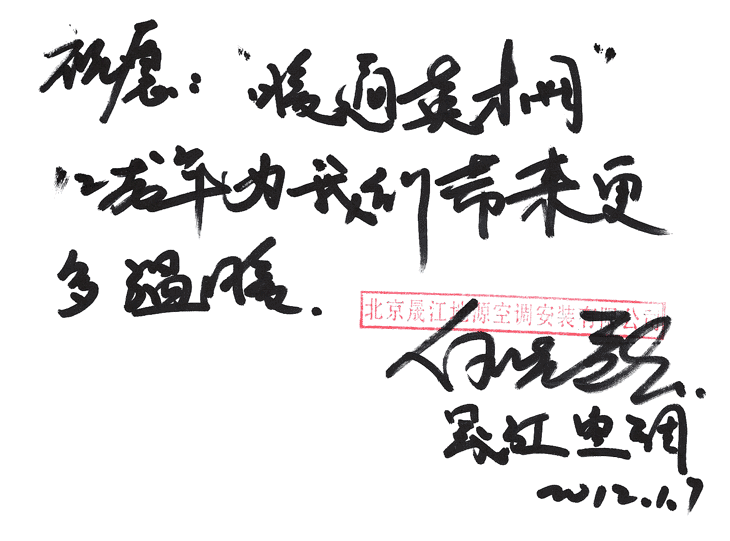 祝愿："暖通英才网"
"12龙年为我们带来更
多温暖.
北京晟江地源空调安装有限公司
晟江空调
2012.1.7